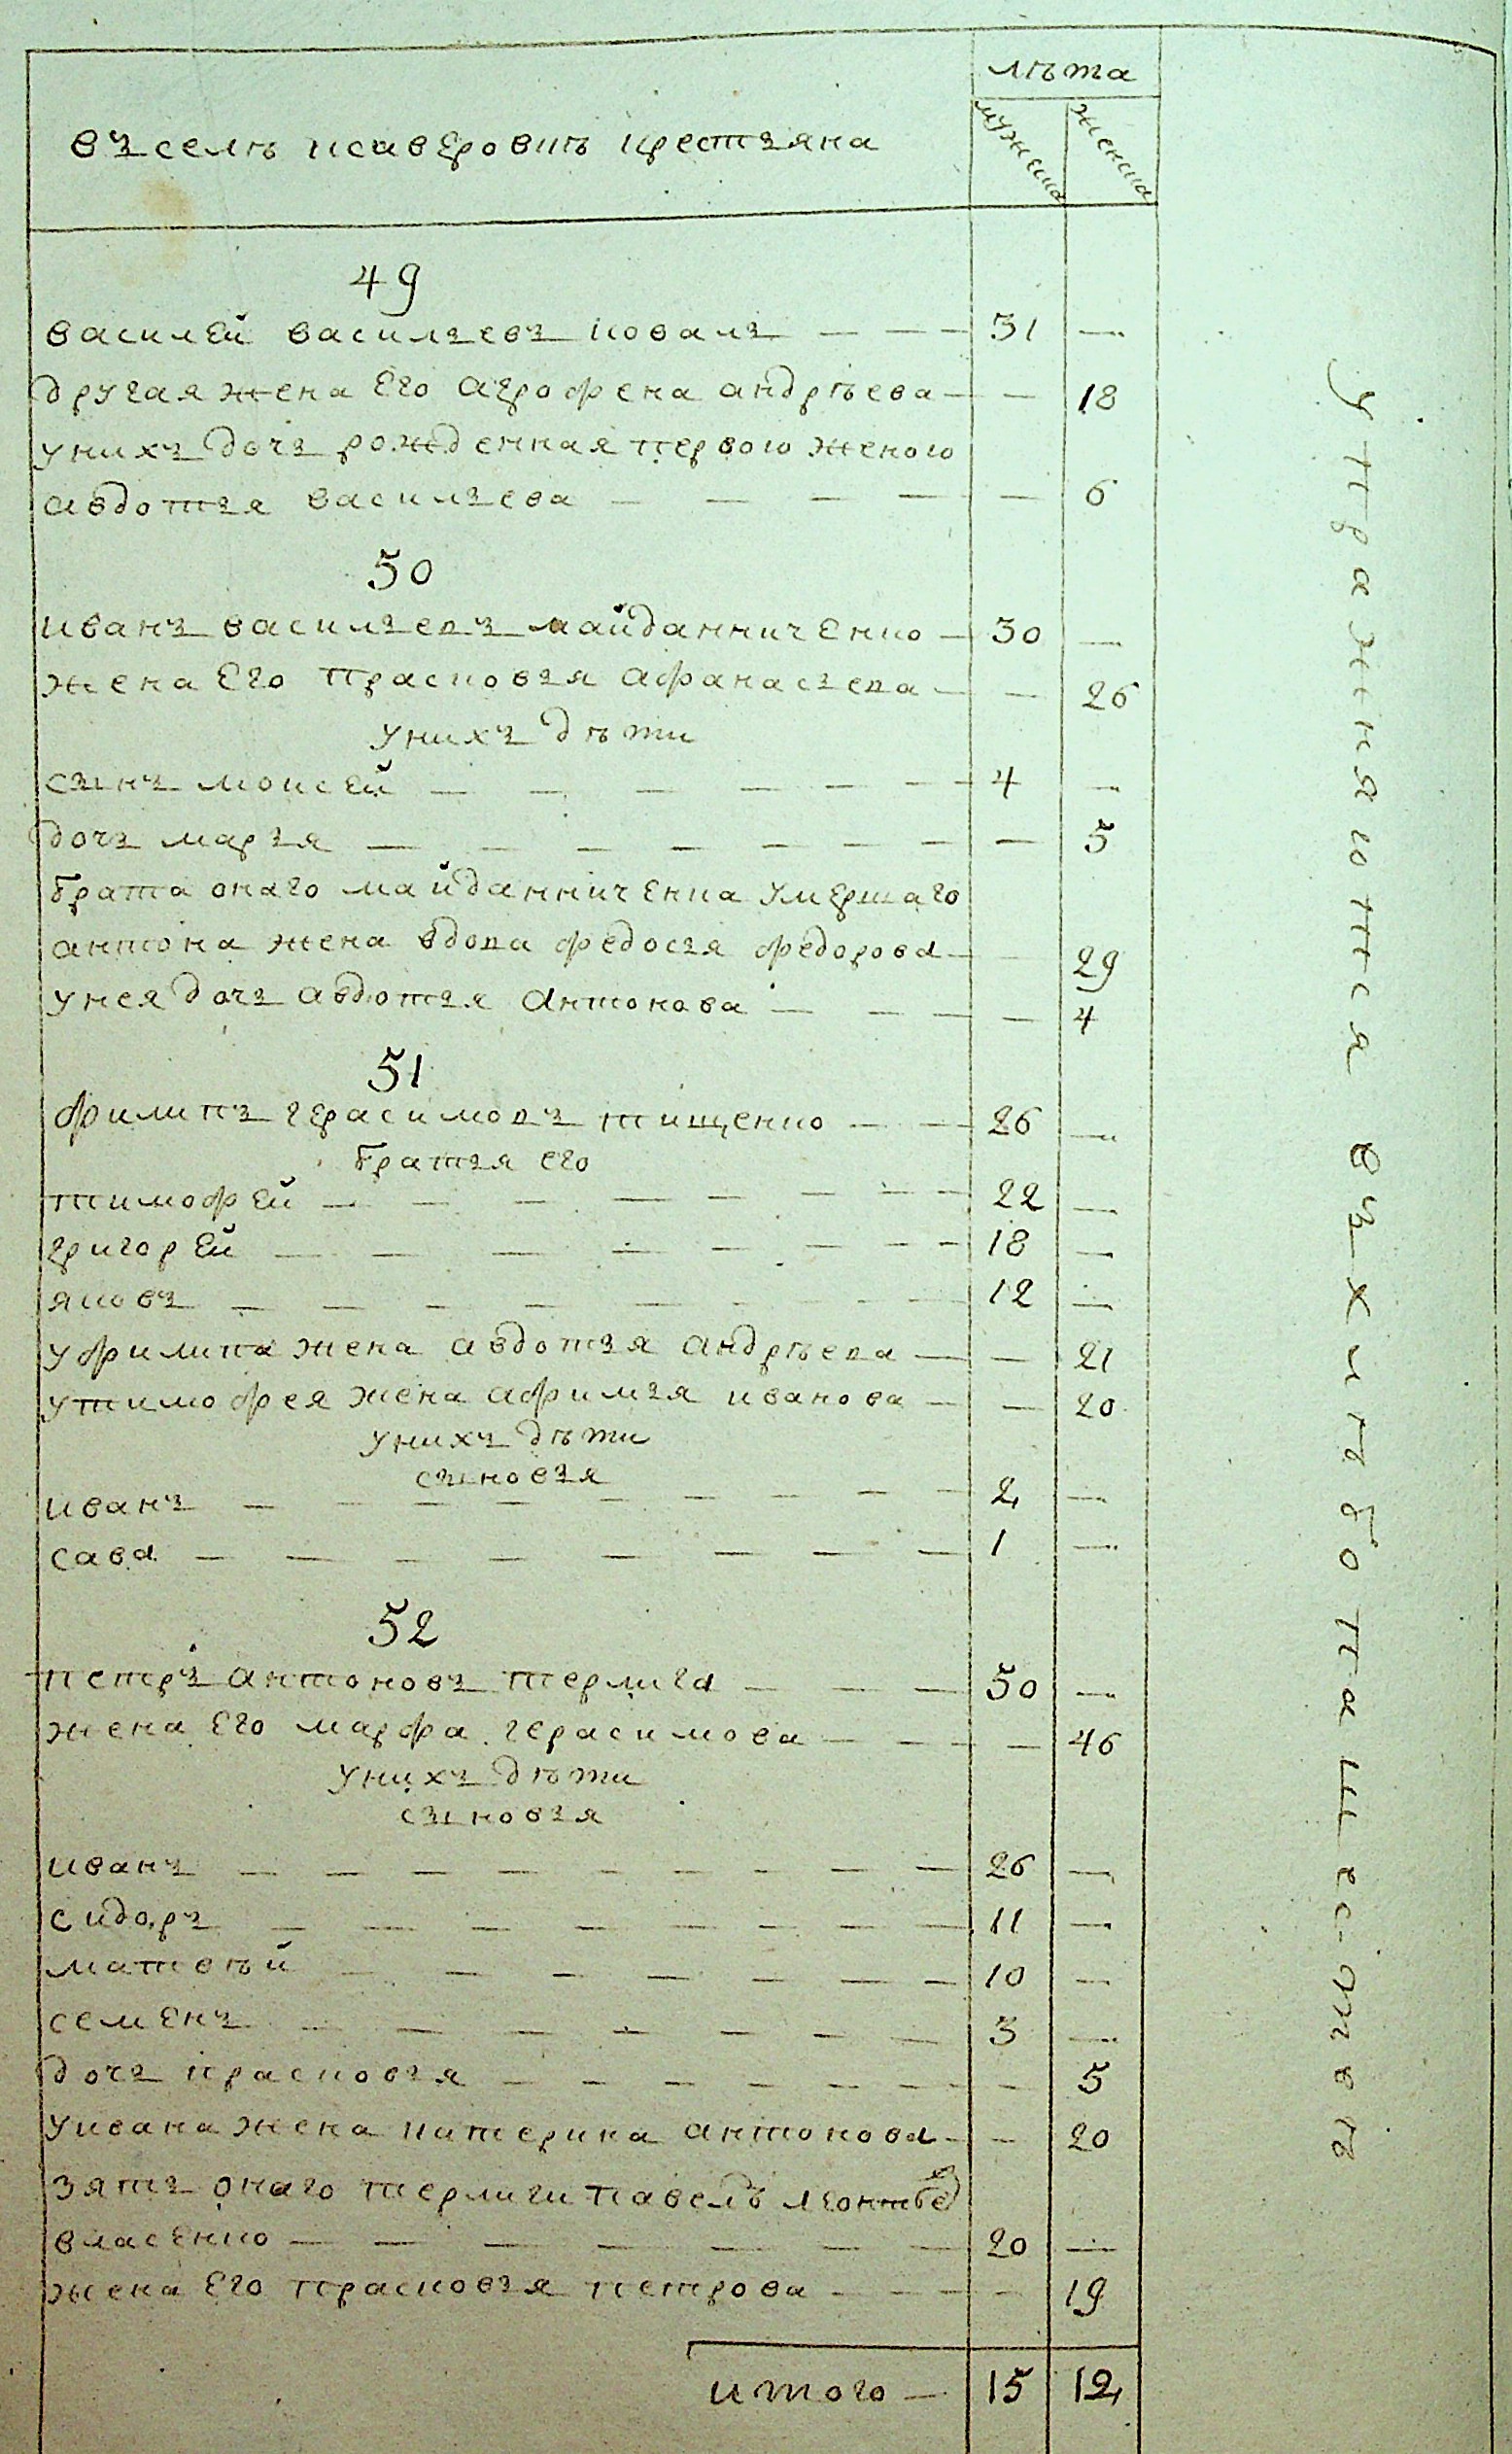 лѣта
въ селѣ Ксаверовкѣ крестьяна
мужеска
женска
49
василей васильевъ коваль — — — 31 —
другая жена его агрофена андрѣева — — 18
у нихъ дочь рожденная первою женою
авдотья васильева — — — — — 6
50
иванъ васильевъ майданниченко — 30 —
жена его прасковья афанасьева — — 26
у нихъ дѣти
сынъ моисей — — — — — — — 4 —
дочь марья — — — — — — — — 5
брата онаго майданниченка умершаго
антона жена вдова федосья федорова — 29
у нея дочь авдотья антонова — — — — 4
51
филипъ герасимовъ тищенко — — 26 —
братья его
тимофей — — — — — — — 22 —
григорей — — — — — — — — 18 —
яковъ — — — — — — — — 12 —
у филипа жена авдотья андрѣева — — 21
у тимофея жена афимья иванова — — 20
у нихъ дѣти
сыновья
иванъ — — — — — — — — — 2 —
сава — — — — — — — — 1 —
52
петръ антоновъ терлига — — — 50 —
жена его марфа герасимова — — — — 46
у нихъ дѣти
сыновья
иванъ — — — — — — — — — 26 —
сидоръ — — — — — — — — 11 —
матвѣй — — — — — — — 10 —
семенъ — — — — — — — 3 —
дочь прасковья — — — — — — — — 5
у ивана жена катерина антонова — — 20
зять онаго терлиги павелъ леонтьев
власенко — — — — — — — 20 —
жена его прасковья петрова — — — — 19
итого — 15 12
упражняются въ хлѣбопашествѣ